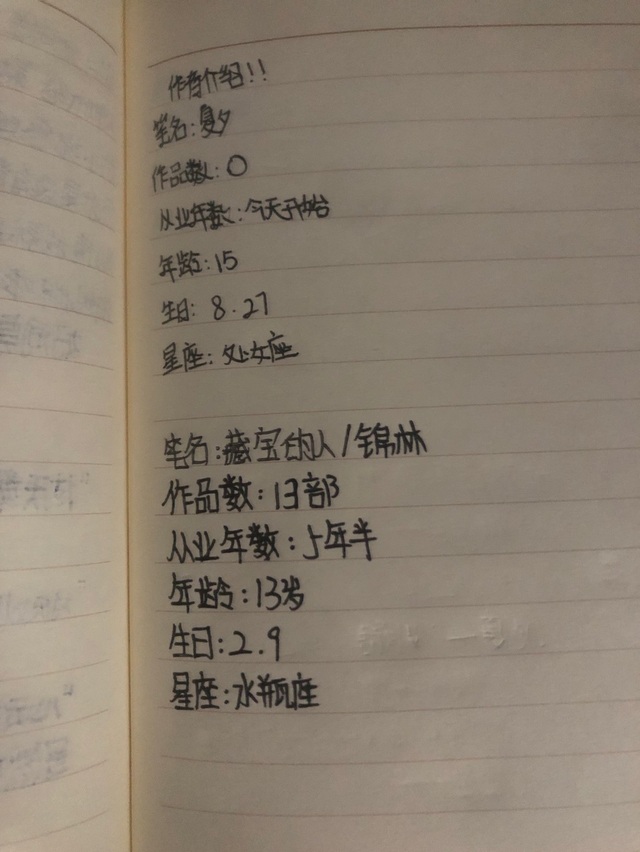 作者介绍!!
笔名:夏夕
作品数:0
从业年数:今天开始
年龄:15
生日:8.27
星座:处女座
笔名:藏宝的人/锦林
作品数:13部
从业年数:5年半
年龄:13岁
生日:2.9
星座:水瓶座